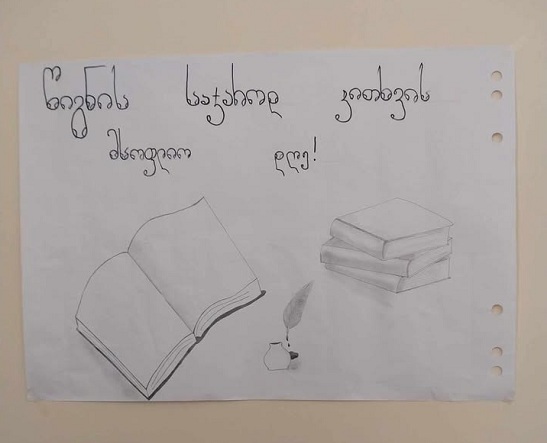 წიგნის საჯაროდ კითხვის
მსოფლიო დღე!